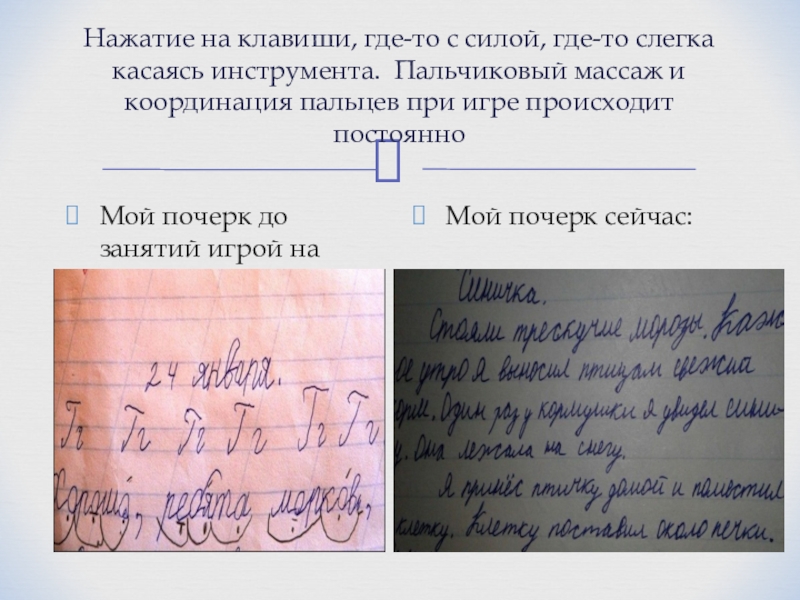 Нажатие на клавиши, где-то с силой, где-то слегка
касаясь инструмента. Пальчиковый массаж и
координация пальцев при игре происходит
постоянно
Мой почерк до
занятий игрой на
24 января.
Гг Гг Гг Гг Гг Гг
Хороша, ребята морковь,
Мой почерк сейчас:
Синичка.
Стояли трескучие морозы. Каж
ое утро я выносил птицам свежий
орм. Один раз у кормушки я увидел сини-
у. Она лежала на снегу.
Я принёс птичку домой и поместил
клетку. Клетку поставил около печки.